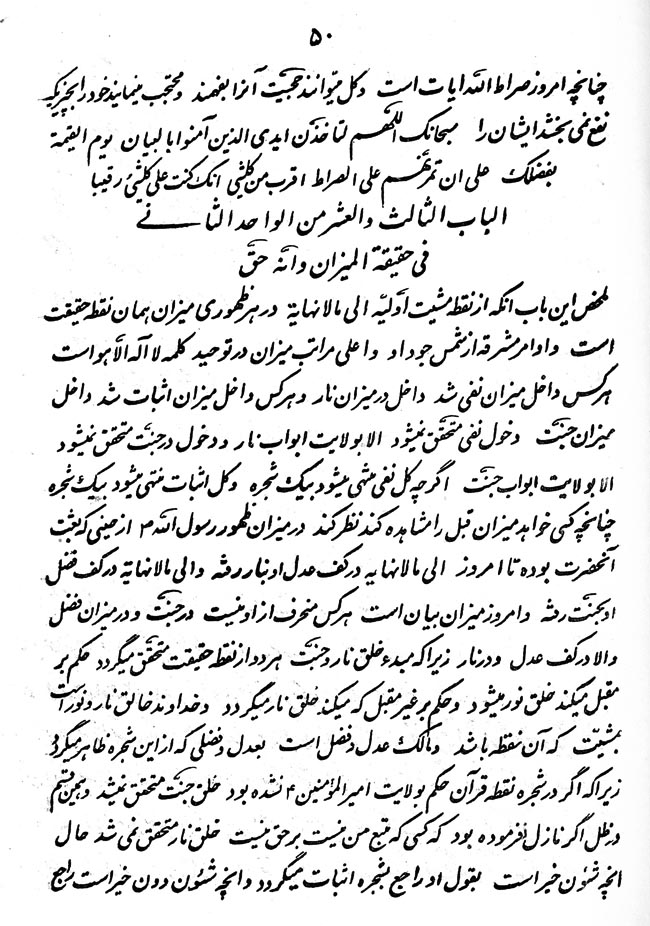 ۵۰
چنانچه امروز صراط الله ایات است وکل میتوانند حجیت آنرا بفهمند ومحتجب مینمایند خود را بچیزیکه
نفع نمی بخشد ایشان را سبحانک اللهم لتاخذن ایدی الذین آمنوا بالبیان یوم القیمة
بفضلک علی ان تمرنهم علی الصراط اقرب من کلشیٔ انک کنت علی کلشیٔ رقیبا
الباب الثالث والعشر من الواحد الثانی
فی حقیقة المیزان وانه حق
ملخص این باب انکه از نقطه مشیت اولیه الی مالانهایة در هر ظهوری میزان همان نقطه حقیقت
است واوامر مشرقه از شمس جود او واعلی مراتب میزان در توحید کلمه لا اله الا هو است
هرکس داخل میزان نفی شد داخل در میزان نار وهرکس داخل میزان اثبات شد داخل
میزان جنت دخول نفی متحقق نمیشود الا بولایت ابواب نار ودخول در جنت متحقق نمیشود
الا بولایت ابواب جنت اگرچه کل نفی منتهی میشود بیک شجره وکل اثبات منتهی میشود بیک شجره
چنانچه کسی خواهد میزان قبل را مشاهده کند نظر کند در میزان ظهور رسول الله ص از حینی که بعثت
آنحضرت بوده تا امروز الی مالانهایه در کف عدل او بنار رفته والی مالانهایة در کف فضل
او بجنت رفته وامروز میزان بیان است هرکس منحرف از او نیست در جنت ودر میزان فضل
والا در کف عدل ودر نار زیرا که مبدء خلق نار وجنت هردو از نقطه حقیقت متحقق میگردد حکم بر
مقبل میکند خلق نور میشود وحکم بر غیر مقبل که میکند خلق نار میگردد وخداوند خالق نار ونور است
بمشیت که آن نقطه باشد ومالک عدل وفضل است بعدل وفضلی که از این شجره ظاهر میگردد
زیرا که اگر در شجره نقطه قرآن حکم بولایت امیرالمؤمنین ۴ نشده بود خلق جنت متحقق نمیشد وهمین قسم
در ظل اگر نازل نفرموده بود که کسی که متبع من نیست بر حق نیست خلق نار متحقق نمی شد حال
انچه شئون خیر است بقول او راجع بشجره اثبات میگردد وانچه شئون دون خیر است راجع